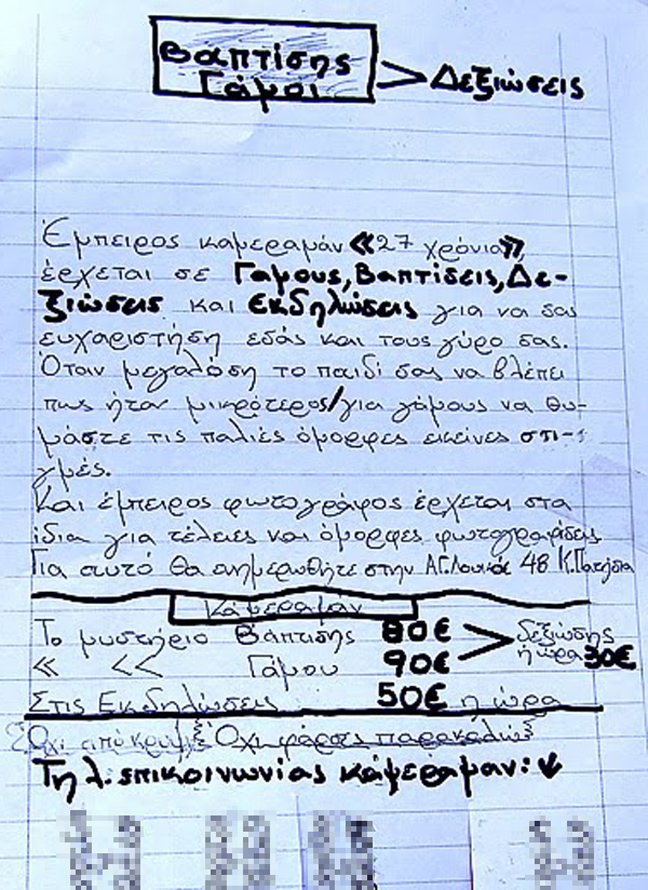 Βαπτίσης
Γάμοι > Δεξιώσεις
Έμπειρος καμεραμάν «27 χρόνια»
έρχεται σε Γάμους, Βαπτίσεις, Δε-
ξιώσεις και Εκδηλώσεις για να σας
ευχαριστήση εσάς και τους γύρο σας.
Όταν μεγαλόση το παιδί σας να βλέπει
πως ήταν μικρότερος/για γάμους να θυ-
μάστε τις παλιές όμορφες εκείνες στι-
γμές.
Και έμπειρος φωτογράφος έρχεται στα
ίδια για τέλειες και όμορφες φωτογραφίσεις
Για αυτό θα ενημερωθήτε στην ΑΓ.Λουκά 48 Κ.Πατήσια
Κάμεραμάν
Το μυστήριο Βαπτίσης 80€ > δεξιώσης
« << Γάμου 90€ ή ώρα 30€
Στις Εκδηλώσεις 50€ η ώρα
Όχι απόκρυψ Όχι φάρσες παρακαλώ
Τηλ. επικοινωνίας κάμεραμαν: